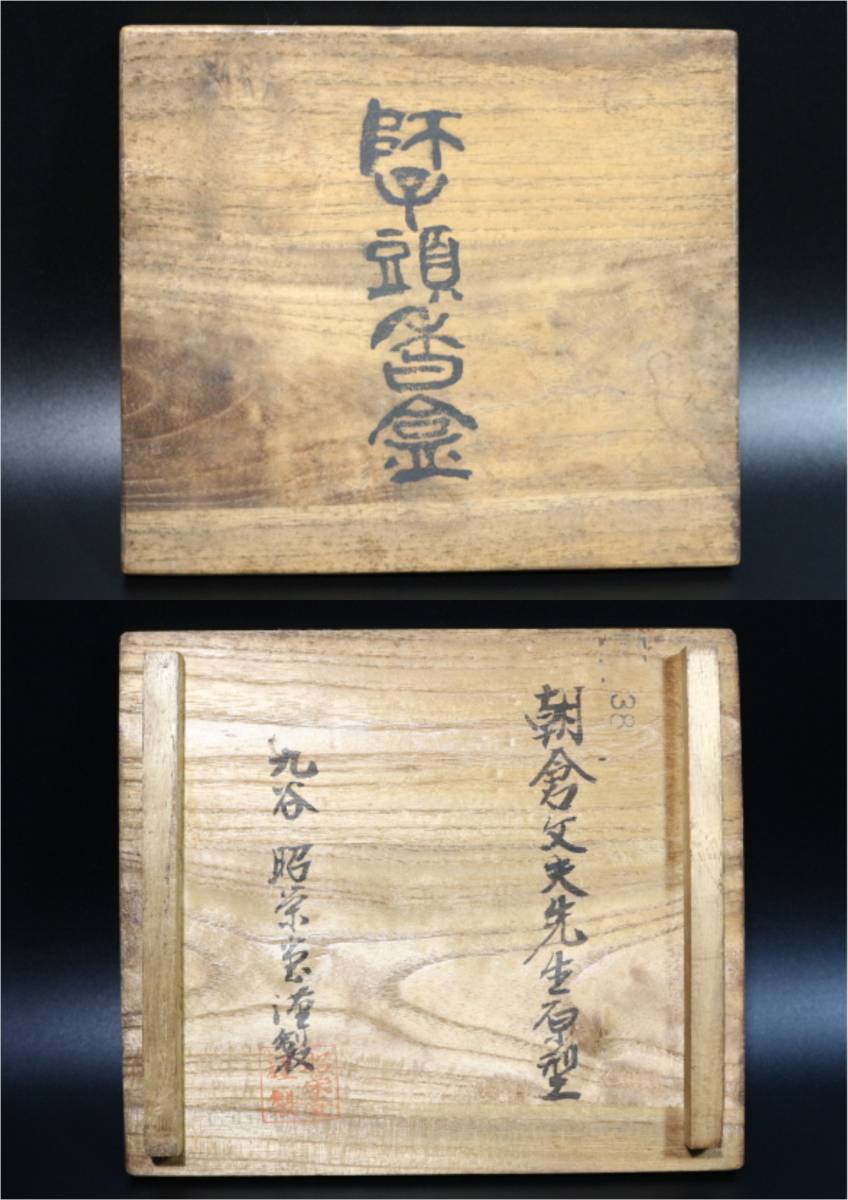 師子頭香盒
38
朝倉文夫先生原型
九谷 昭栄堂謹製